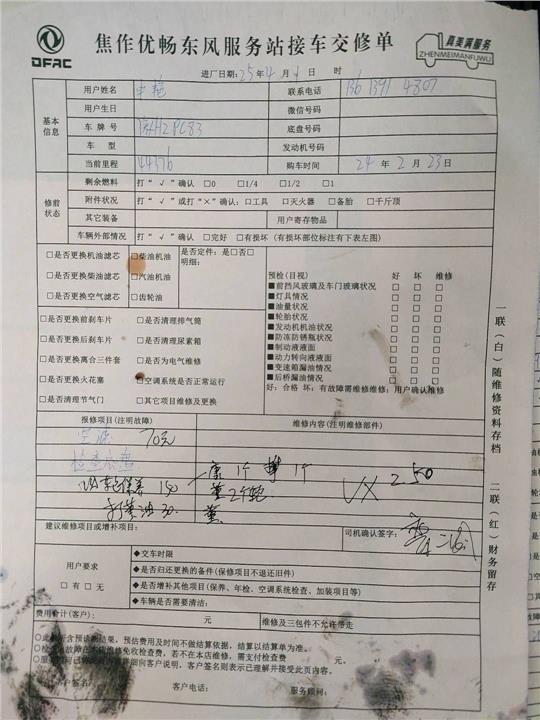 DFAC
焦作优畅东风服务站接车交修单
真美满服务
ZHENMEIMANFUWU
进厂日期: 25年 4月 1日 时
基本信息
用户姓名 联系电话 136 1391 4807
用户生日 微信号码
车牌号 底盘号码
车型 发动机号码
当前里程 44376 购车时间 24年 2月 23日
修前状态
剩余燃料 打“√”确认 □0 □1/4 □1/2 □1
附件状况 打“√”或打“×”确认: □工具 □灭火器 □备胎 □千斤顶
其它装备 用户寄存物品
车辆外部情况 打“√”确认 □完好 □有损坏 (有损坏部位标注有下表左图)
□是否更换机油滤芯 □柴油机油 是否定件: 是□否□
明细:
□是否更换柴油滤芯 □汽油机油
□是否更换空气滤芯 □齿轮油
□是否更换前刹车片 □是否清理排气筒
□是否更换后刹车片 □是否清理尿素箱
□是否更换离合三件套 □是否为电气维修
□是否更换火花塞 □空调系统是否正常运行
□是否清理节气门 □其它项目维修及更换
预检(目视) 好 坏 维修
■前挡风玻璃及车门玻璃状况 □ □ □
■灯具情况 □ □ □
■油量状况 □ □ □
■轮胎状况 □ □ □
■发动机机油状况 □ □ □
■防冻防锈瓶状况 □ □ □
■制动液液面 □ □ □
■动力转向液液面 □ □ □
■变速箱漏油情况 □ □ □
■后桥漏油情况 □ □ □
好: 合格 坏: 有故障需维修维修: 用户确认维修
一联(白)随维修资料存档
二联(红)财务留存
报修项目(注明故障) 维修内容(注明维修部件)
空滤 70元
检查底盘
保养 150
打黄油 30
250
建议维修项目或增补项目: 司机确认签字:
用户要求
□有 □无
◆交车时限
◆是否归还更换的备件(保修项目不退还旧件)
◆是否增补其他项目(保养、年检、空调系统检查、加装项目等)
◆车辆是否需要清洁:
费用合计(客户): 元 维修及三包件不允许带走
预估费用及时间不做结算依据, 结算以结算单为准。
若不在本店维修, 需支付检查费 元。
向客户说明, 客户签名则表示已理解并接受此页内容。
客户电话: 服务顾问: